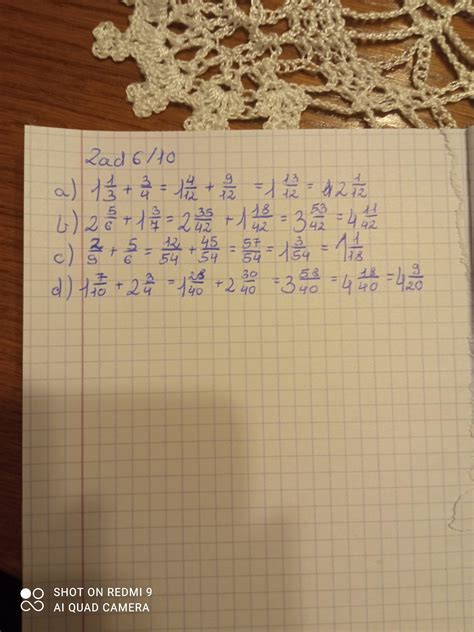 Zad 6/10
a) 1 1/3 + 3/4 = 1 4/12 + 9/12 = 1 13/12 = 2 1/12
b) 2 5/6 + 1 3/7 = 2 35/42 + 1 18/42 = 3 53/42 = 4 11/42
c) 2/9 + 5/6 = 12/54 + 45/54 = 57/54 = 1 3/54 = 1 1/18
d) 1 7/10 + 2 3/4 = 1 28/40 + 2 30/40 = 3 58/40 = 4 18/40 = 4 9/20
SHOT ON REDMI 9
AI QUAD CAMERA